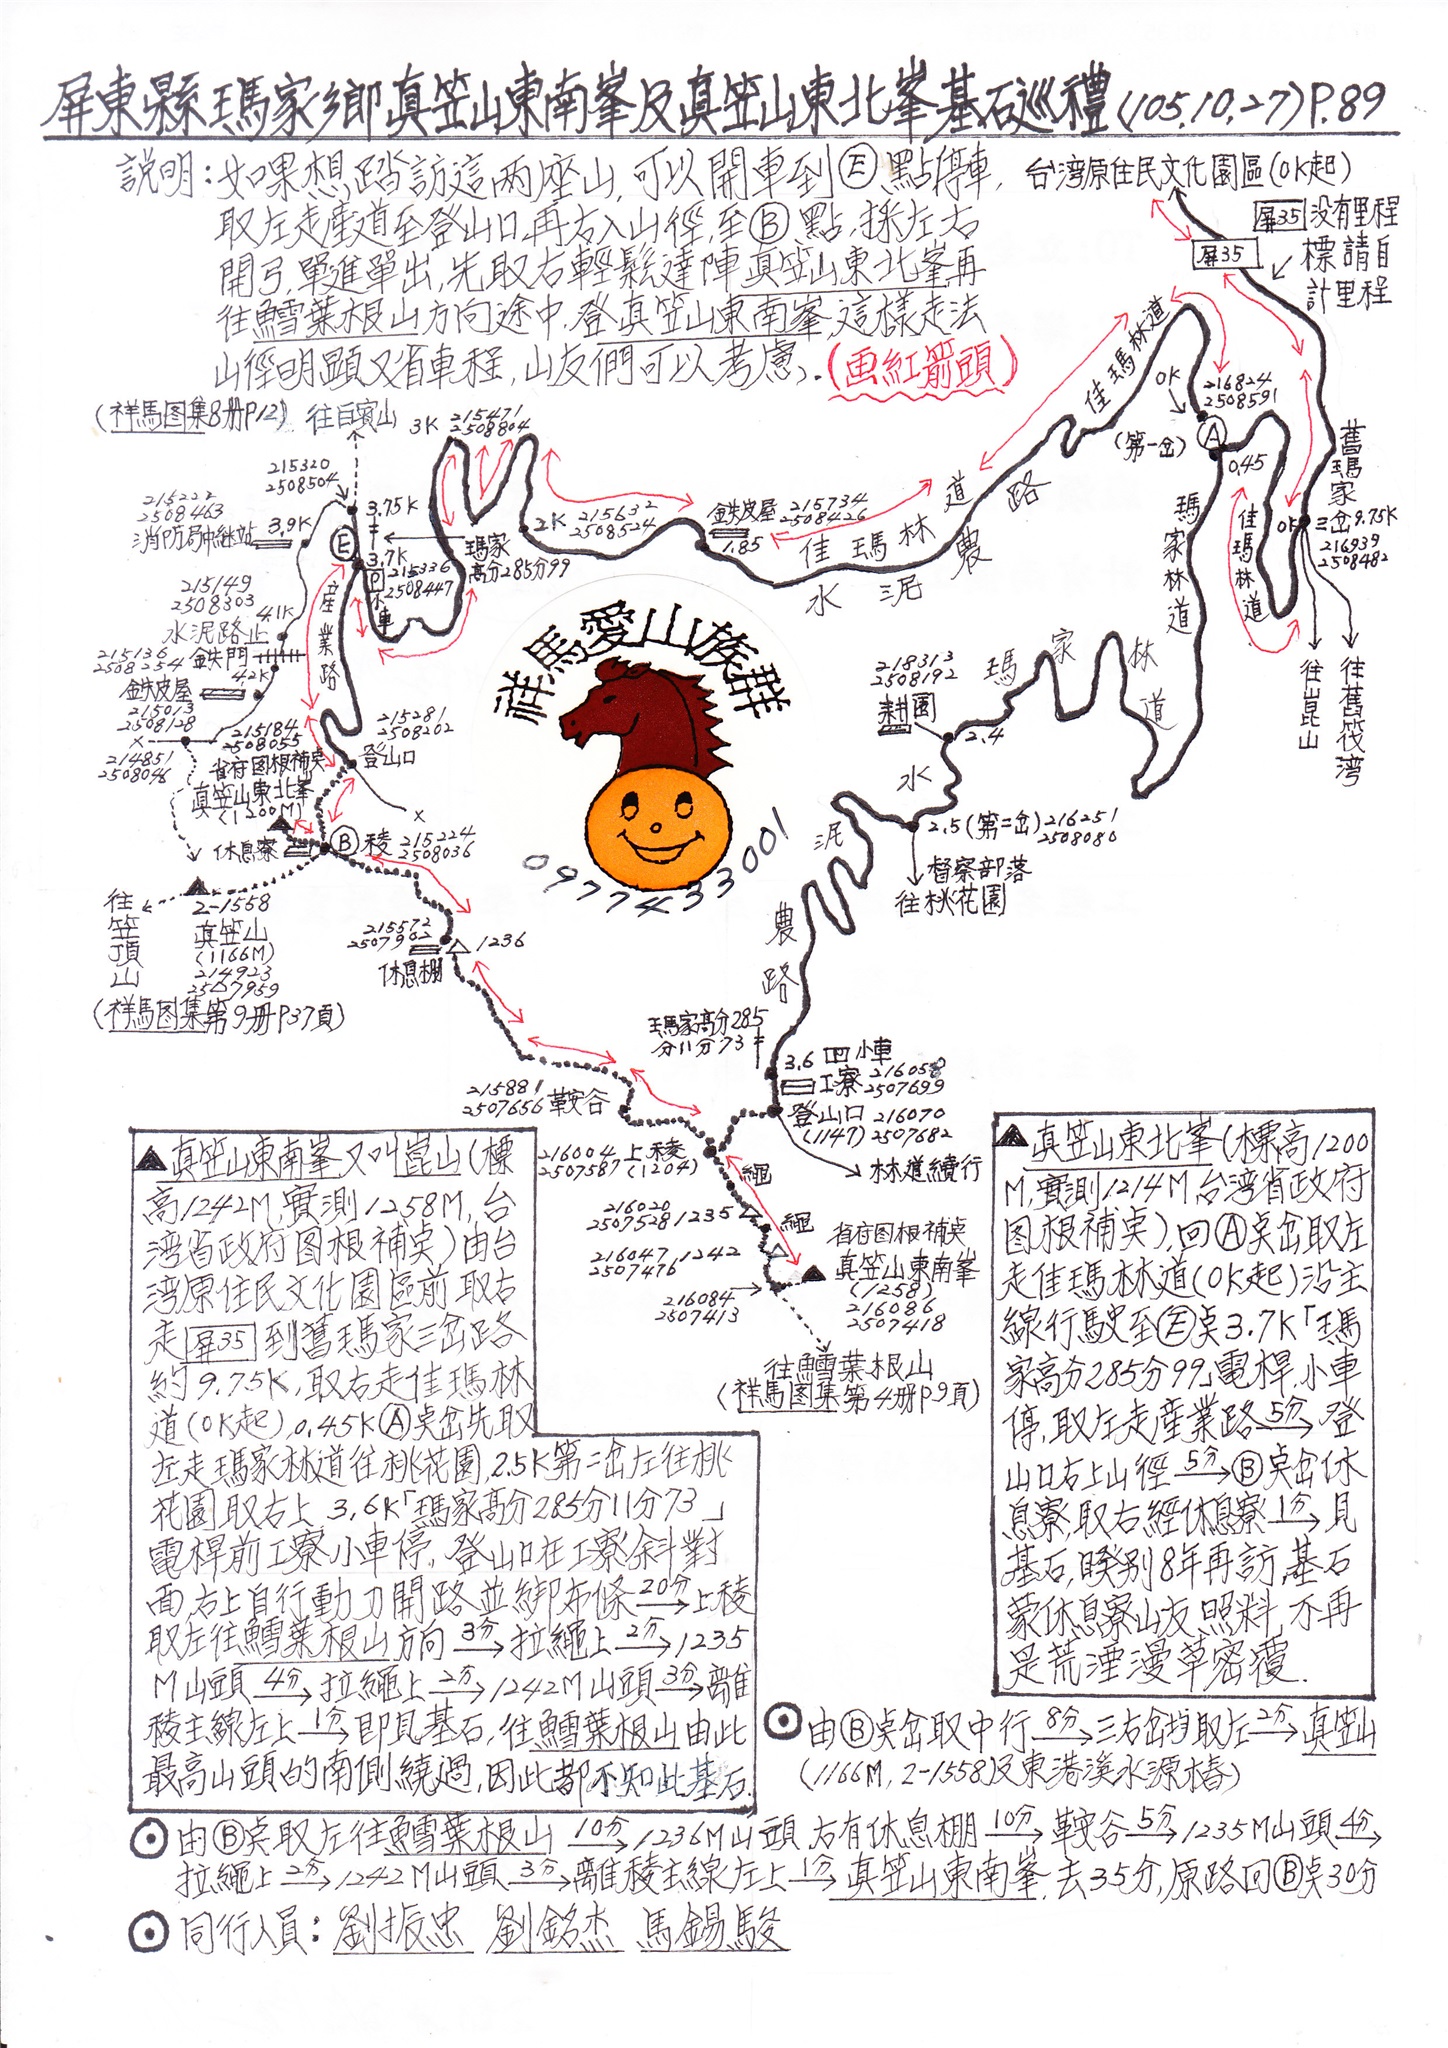 屏東縣瑪家鄉真笠山東南峯及真笠山東北峯基石巡禮(105.10.27)P.89
説明:如果想踏訪這兩座山,可以開車到Ⓔ點停車,
取左走產道至登山口,再右入山徑,至Ⓑ點,採左右
開弓,單進單出,先取右輕鬆達陣真笠山東北峯,再
往鱈葉根山方向途中,登真笠山東南峯,這樣走法
山徑明顕又省車程,山友們可以考慮,.(画紅箭頭)
台湾原住民文化園區(0K起)
屏35 没有里程
標請自
計里程
屏35
(祥馬图集8册P12)
往白賓山
3K 215471
2508804
215320
2508504
3.75K
215222
2508463
消防局中継站
3.9K
Ⓔ
3.7K
215336
2508447
小車
瑪家
高分285分99
2K
215632
2508524
鉄皮屋
1.85
215734
2508426
佳瑪林道
水泥農路
佳瑪林道
0K
216824
2508591
(第一岔)
Ⓐ
0.45
佳瑪林道
0K
舊瑪家
三岔9.75K
216939
2508482
往崑山
往舊筏湾
瑪家林道
215149
2508303
4.1K
水泥路止
215136
2508254
鉄門
4.2K
鉄皮屋
215013
2508128
214851
2508046
產業路
215184
2508055
省府图根補桌
真笠山東北峯
(1200M)
215281
2508202
登山口
休息寮
Ⓑ稜 215224
2508036
往笠頂山
2-1558
真笠山
(1166M)
214923
2507959
(祥馬图集第9册P37頁)
祥馬愛山族群
0977433001
瑪家林道
218313
2508192
耕園
2.4
水泥農路
2.5(第二岔)216251
2508080
督察部落
往桃花園
215572
2507902
休息棚
1236
瑪家高分285
分11分73
3.6 小車
工寮 216058
2507699
登山口 216070
(1147) 2507682
林道續行
215881
2507656 鞍谷
216004 上稜
2507587 (1204)
繩
216020
2507528 1235
繩
216047 1242
2507476
216084
2507413
省府图根補桌
真笠山東南峯
(1258)
216086
2507418
往鱈葉根山
(祥馬图集第4册P9頁)
▲真笠山東南峯又叫崑山(標
高1242M,實測1258M,台
湾省政府图根補桌)由台
湾原住民文化園區前取右
走屏35到舊瑪家三岔路
約9.75K,取右走佳瑪林
道(0K起),0.45KⒶ桌岔先取
左走瑪家林道往桃花園,2.5K第二岔左往桃
花園取右上3.6K「瑪家高分285分11分73」
電桿前工寮小車停,登山口在工寮斜對
面,右上自行動刀開路並綁布條20分→上稜
取左往鱈葉根山方向3分→拉繩上2分→1235
M山頭4分→拉繩上2分→1242M山頭3分→離
稜主線左上1分→即見基石,往鱈葉根山由此
最高山頭的南側繞過,因此都不知此基石.
▲真笠山東北峯(標高1200
M,實測1214M台湾省政府
图根補桌),回Ⓐ桌岔取左
走佳瑪林道(0K起)沿主
線行駛至Ⓔ桌3.7K「瑪
家高分285分99」電桿,小車
停,取左走產業路5分→登
山口右上山徑5分→Ⓑ桌岔休
息寮,取右經休息寮1分→見
基石,睽别8年再訪,基石
蒙休息寮山友照料,不再
是荒湮漫草密覆.
⊙由Ⓑ桌岔取中行8分→三右岔均取左2分→真笠山
(1166M,2-1558)及東港溪水源椿)
⊙由Ⓑ桌取左往鱈葉根山10分→1236M山頭,右有休息棚10分→鞍谷5分→1235M山頭4分→
拉繩上2分→1242M山頭3分→離稜主線左上1分→真笠山東南峯,去35分,原路回Ⓑ桌30分
⊙同行人員:劉振忠 劉銘杰 馬錫駿